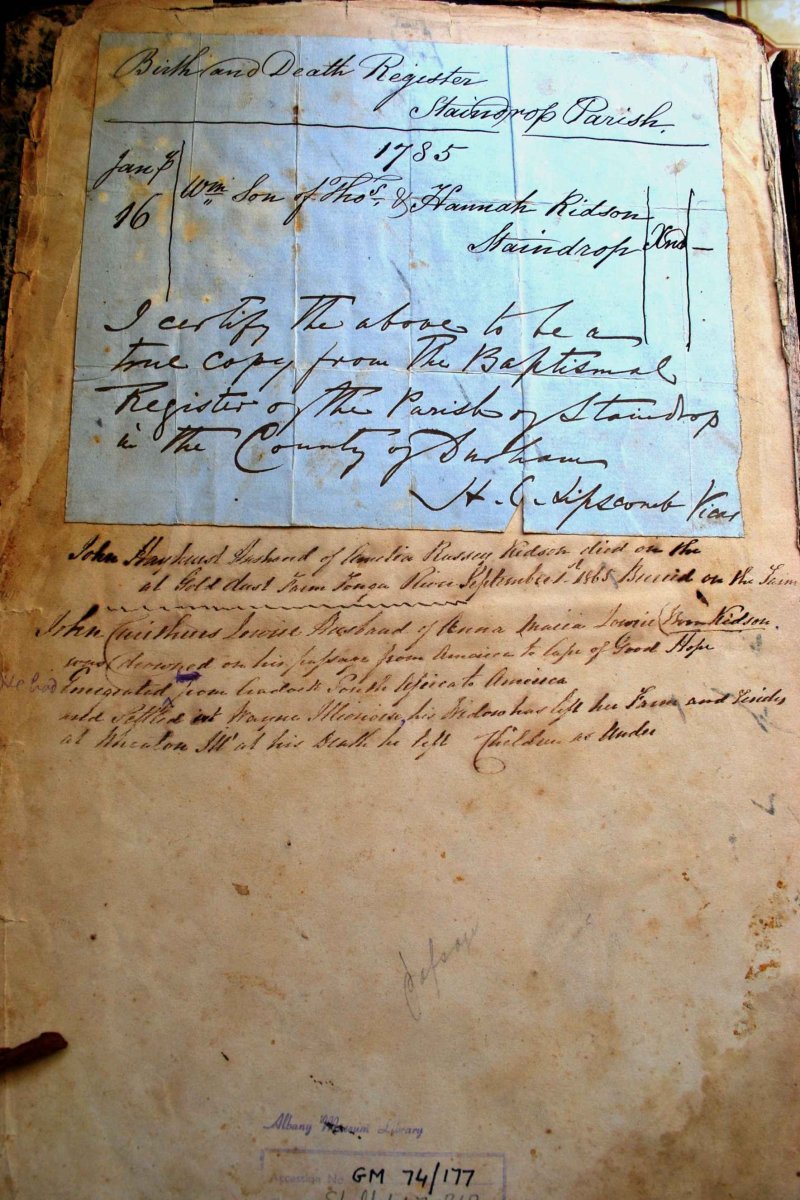 Birth and Death Register
Staindrop Parish.
1785
Jany
16
Wm Son of Thos. & Hannah Kidson
Staindrop Xnd —
I certify the above to be a
true copy from the Baptismal
Register of the Parish of Staindrop
in the County of Durham
H. C. Lipscomb Vicar
John Hayhurst Husband of Amelia Kidson died on the
at Gold dust Farm Tonga River September 1st 1865 Buried on the Farm
John Lowrie Husband of Anna Maria Lowrie Born Kidson.
was drowned on his passage from America to Cape of Good Hope
He had Emigrated from Cradock South Africa to America
and Settled in Wayne Illinois, his Widow has left her Farm and
at Wheaton Ills at his Death he left Children as Under
Albany Museum Library
Accession No. GM 74/177